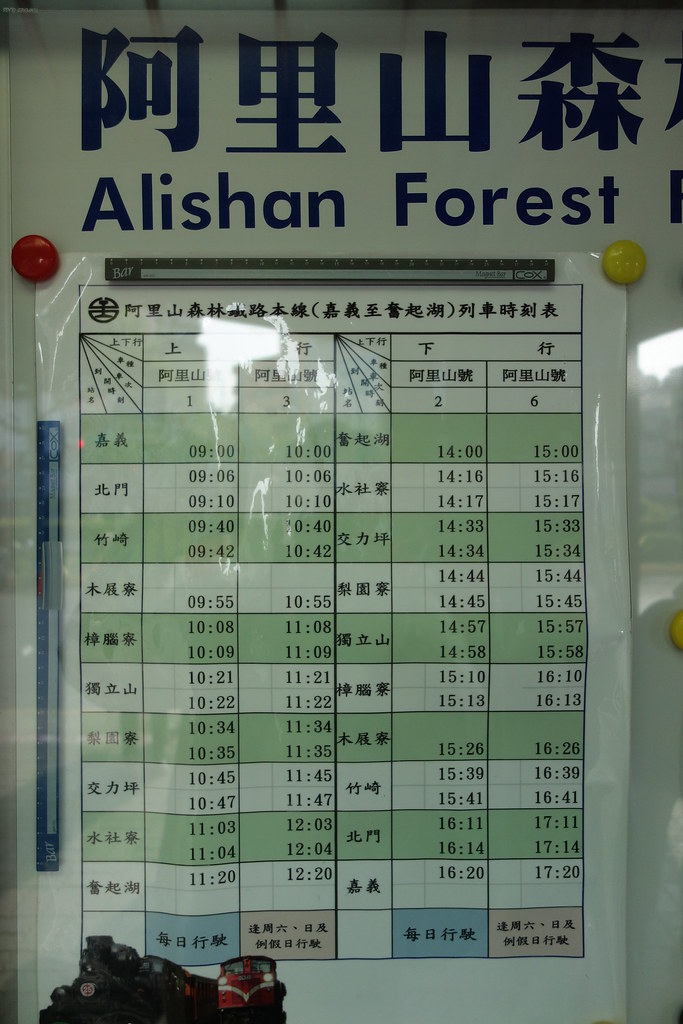 阿里山森
Alishan Forest
Bar Magnet bar COX
阿里山森林鐵路本線(嘉義至奮起湖)列車時刻表
上下行 車種 車次 到開時刻 站名 上 行 上下行 車種 車次 到開時刻 站名 下 行
阿里山號 阿里山號 阿里山號 阿里山號
1 3 2 6
嘉義 09:00 10:00 奮起湖 14:00 15:00
北門 09:06 10:06 水社寮 14:16 15:16
09:10 10:10 14:17 15:17
竹崎 09:40 10:40 交力坪 14:33 15:33
09:42 10:42 14:34 15:34
木屐寮 梨園寮 14:44 15:44
09:55 10:55 14:45 15:45
樟腦寮 10:08 11:08 獨立山 14:57 15:57
10:09 11:09 14:58 15:58
獨立山 10:21 11:21 樟腦寮 15:10 16:10
10:22 11:22 15:13 16:13
梨園寮 10:34 11:34 木屐寮
10:35 11:35 15:26 16:26
交力坪 10:45 11:45 竹崎 15:39 16:39
10:47 11:47 15:41 16:41
水社寮 11:03 12:03 北門 16:11 17:11
11:04 12:04 16:14 17:14
奮起湖 11:20 12:20 嘉義 16:20 17:20
每日行駛 逢周六、日及 每日行駛 逢周六、日及
例假日行駛 例假日行駛
COX
Bar
25